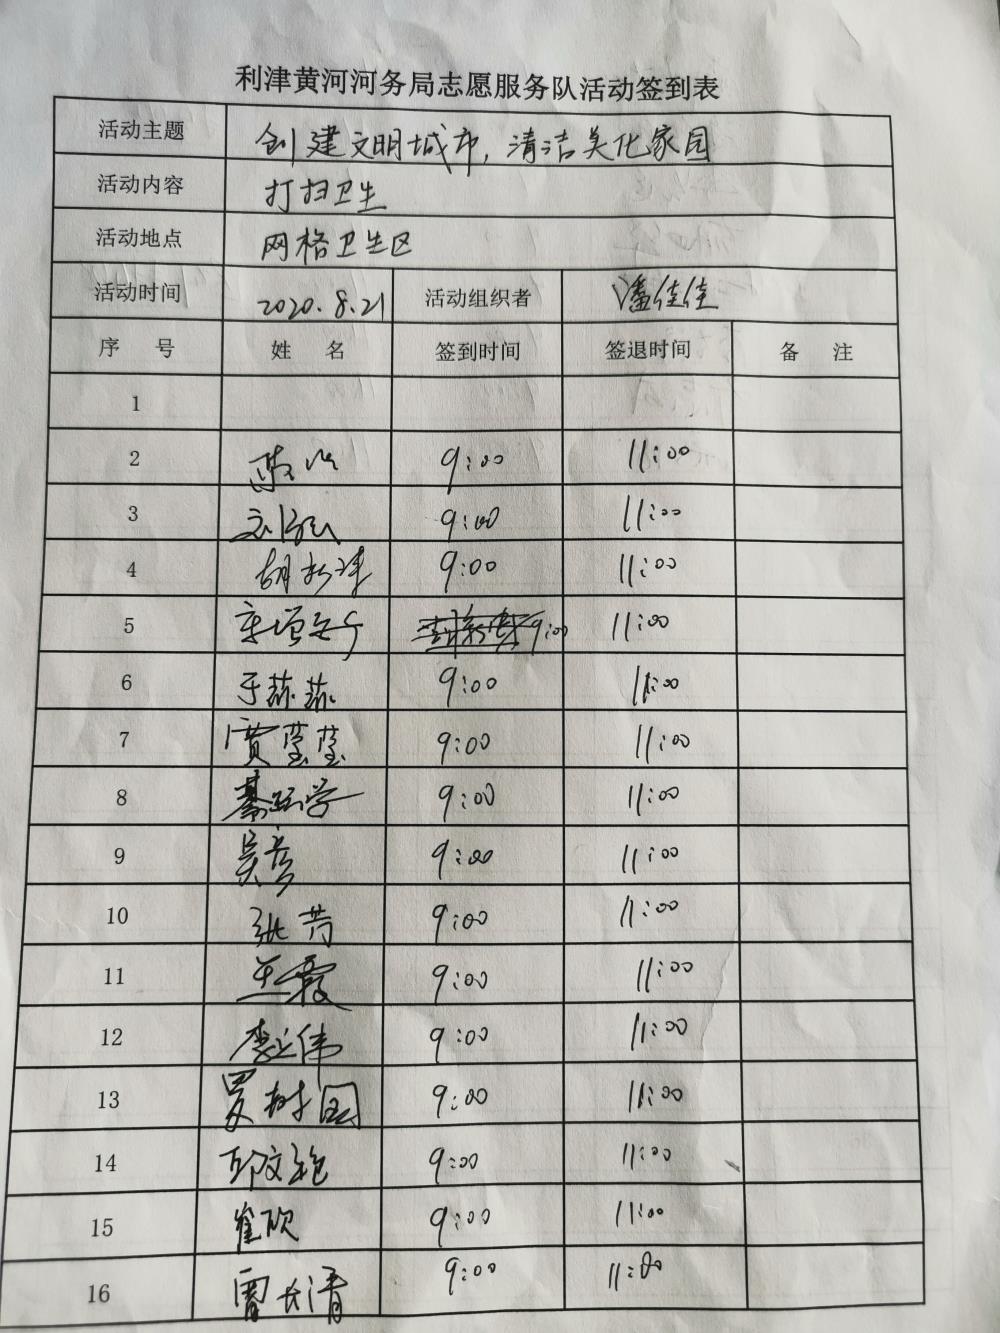 利津黄河河务局志愿服务队活动签到表
活动主题 创建文明城市，清洁美化家园
活动内容 打扫卫生
活动地点 网格卫生区
活动时间 2020.8.21 活动组织者 潘佳佳
序 号 姓 名 签到时间 签退时间 备 注
1
2 9:00 11:00
3 9:00 11:00
4 胡新泽 9:00 11:00
5 9:00 11:00
6 于蕊蕊 9:00 11:00
7 贾莹莹 9:00 11:00
8 9:00 11:00
9 吴彦 9:00 11:00
10 张芳 9:00 11:00
11 王霞 9:00 11:00
12 李延伟 9:00 11:00
13 罗树国 9:00 11:00
14 9:00 11:00
15 崔欣 9:00 11:00
16 9:00 11:00